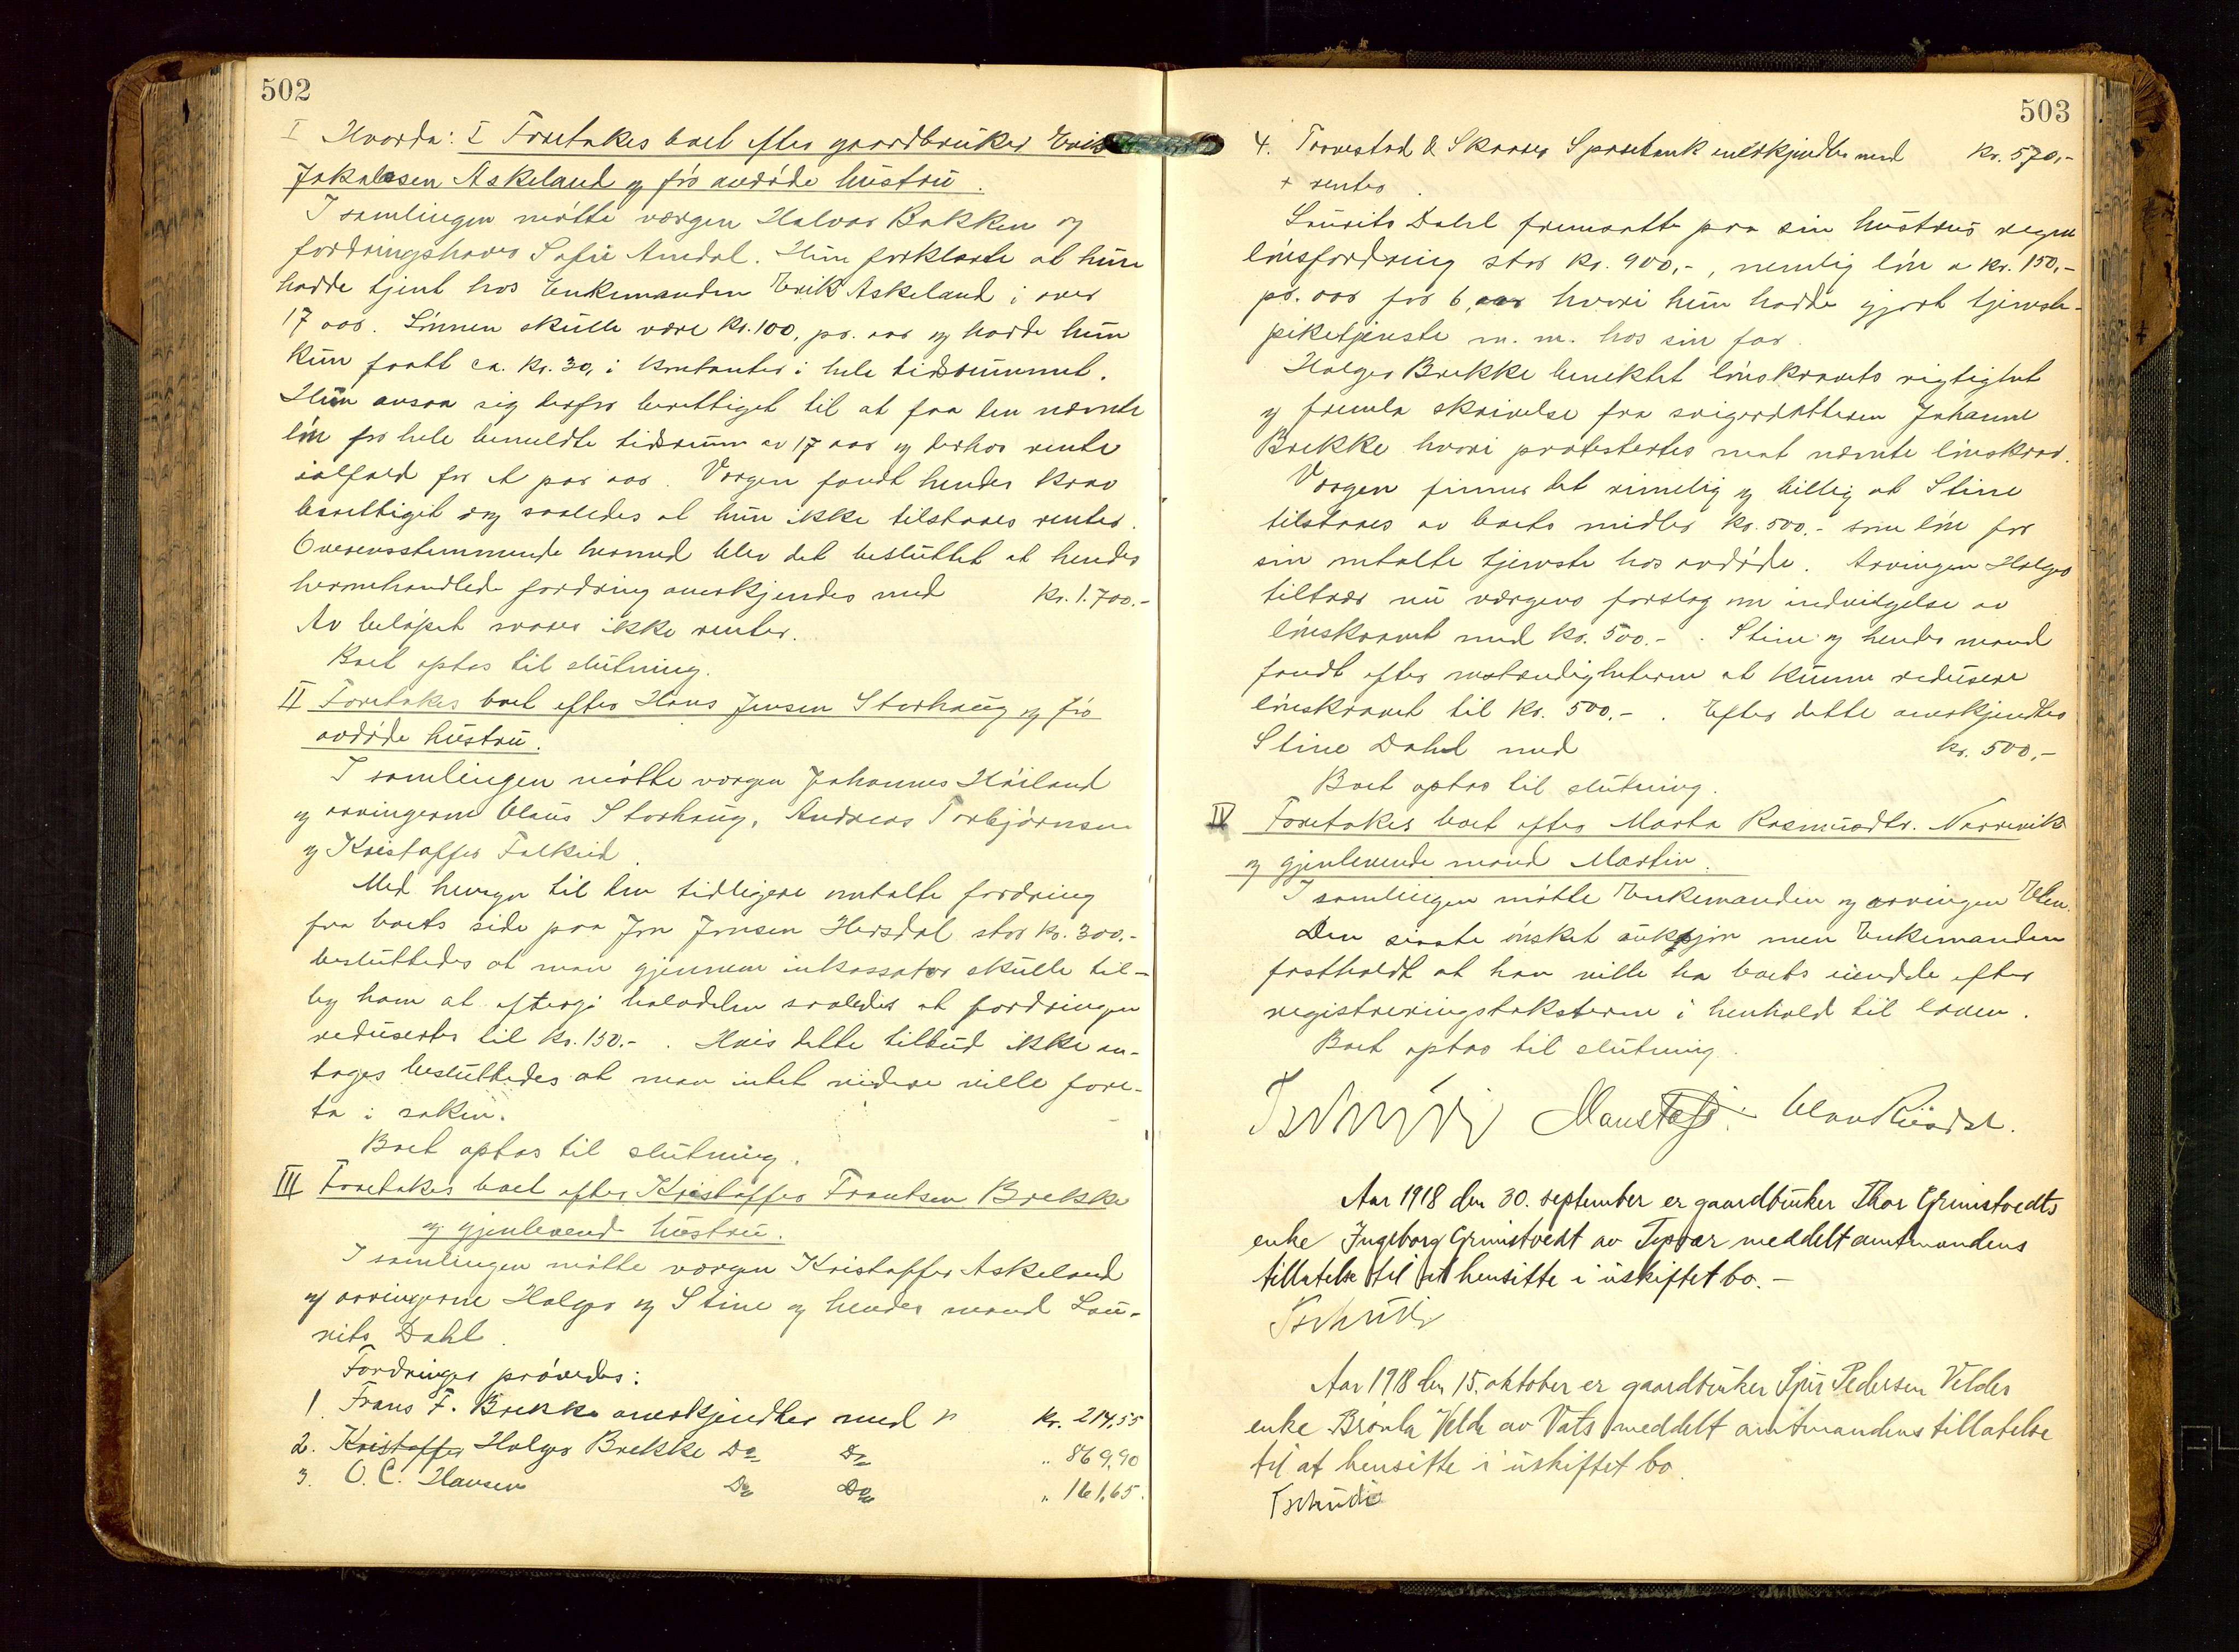 502
I Hvorda: I Foretakes boet efter gaardbruker Erik
Jakobsen Askeland og før avdøde hustru.
I samlingen møtte vergen Halvor Bakken og
fordringshaver Sofie Amdal. Hun forklarte at hun
hadde tjent hos Enkemanden Erik Askeland i over
17 aar. Lønnen skulle være kr. 100, pr. aar og hadde hun
kun faatt ca. kr. 30, i kontanter i hele tidsrummet.
Hun ansaa sig derfor berettiget til at faa den nævnte
løn for hele bemeldte tidsrum av 17 aar og derhos rente
ialfald for et par aar. Vergen fandt hendes krav
berettiget dog saaledes at hun ikke tilstaaes renter.
Overensstemmende hermed blev det besluttet at hendes
heromhandlede fordring anerkjendes med kr. 1.700.-
Av beløpet svares ikke renter.
Boet optas til slutning.
II Foretakes boet efter Hans Jensen Storhaug og før
avdøde hustru.
I samlingen møtte vergen Johannes Høiland
og arvingerne Claus Storhaug, Andreas Torbjørnsen
og Kristoffer Falkeid.
Med hensyn til den tidligere omtalte fordring
fra boets side paa Jon Jonsen Hersdal stor kr. 300,-
besluttedes at man gjennem inkassator skulle til-
by ham at eftergi halvdelen saaledes at fordringen
redusertes til kr. 150.- . Hvis dette tilbud ikke an-
tages besluttedes at man intet videre ville fore-
ta i saken.
Boet optas til slutning.
III Foretakes boet efter Kristoffer Frantsen Brekke
og gjenlevende hustru.
I samlingen møtte vergen Kristoffer Askeland
og arvingerne Holger og Stine og hendes mand Lau-
rits Dahl.
Fordringer prøvedes:
1. Frans F. Brekke anerkjendtes med kr. 214,55
2. Kristoffer Holger Brekke Do Do " 869,90
3. O. C. Hansen Do Do " 161,65.
503
4. Torvestad & Skaare Sparebank anerkjendtes med kr. 570,-
+ renter.
Laurits Dahl fremsatte paa sin hustrus vegne
lønsfordring stor kr. 900,-, nemlig løn a kr. 150,-
pr. aar for 6 aar hvori hun hadde gjort tjeneste-
piketjeneste m. m. hos sin far.
Holger Brekke benektet lønskravets rigtighet
og fremla skrivelse fra svigerdatteren Johanne
Brekke hvori protestertes mot nævnte lønskrav.
Vergen finner det rimelig og billig at Stine
tilstaaes av boets midler kr. 500.- som løn for
sin omtalte tjeneste hos avdøde. Arvingen Holger
tiltrær nu vergens forslag om indvilgelse av
lønskravet med kr. 500.- . Stine og hendes mand
fandt efter omstændigheterne at kunne redusere
lønskravet til kr. 500.- . Efter dette anerkjendtes
Stine Dahl med kr. 500,-
Boet optas til slutning.
IV Foretakes boet efter Marta Rasmusdtr. Norrevik
og gjenlevende mand Martin.
I samlingen møtte Enkemanden og arvingen Elen.
Den sidste ønsket auksjon men Enkemanden
fastholdt at han ville ha boets eiendele efter
registreringstaksterne i henhold til loven.
Boet optas til slutning.
Tschudi
Aar 1918 den 30. september er gaardbruker Thor Grimstvedts
enke Ingeborg Grimstvedt av Tysvær meddelt amtmandens
tillatelse til at hensitte i uskiftet bo.-
Tschudi
Aar 1918 den 15. oktober er gaardbruker Sjur Pedersen Veldes
enke Brønla Velde av Vats meddelt amtmandens tillatelse
til at hensitte i uskiftet bo.
Tschudi